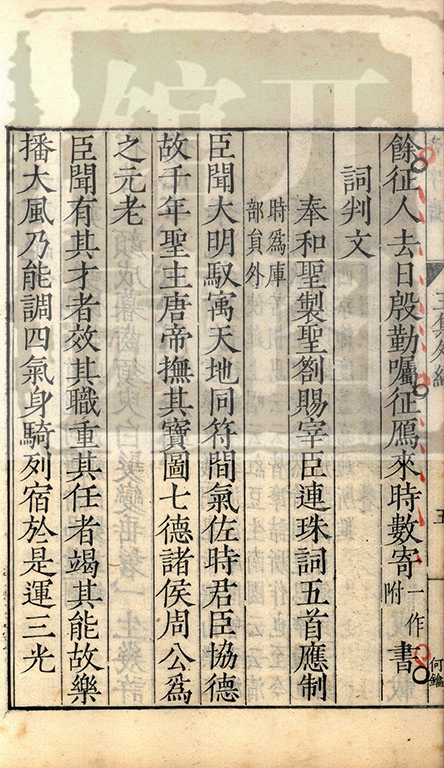 餘征人去日殷勤囑征鴈來時數寄一作附書
詞判文
奉和聖製聖劄賜宰臣連珠詞五首應制
時爲庫部員外
臣聞大明馭寓天地同符間氣佐時君臣協德
故千年聖主唐帝撫其寶圖七德諸侯周公爲
之元老
臣聞有其才者效其職重其任者竭其能故樂
播大風乃能調四氣身騎列宿於是運三光
五
何鑰